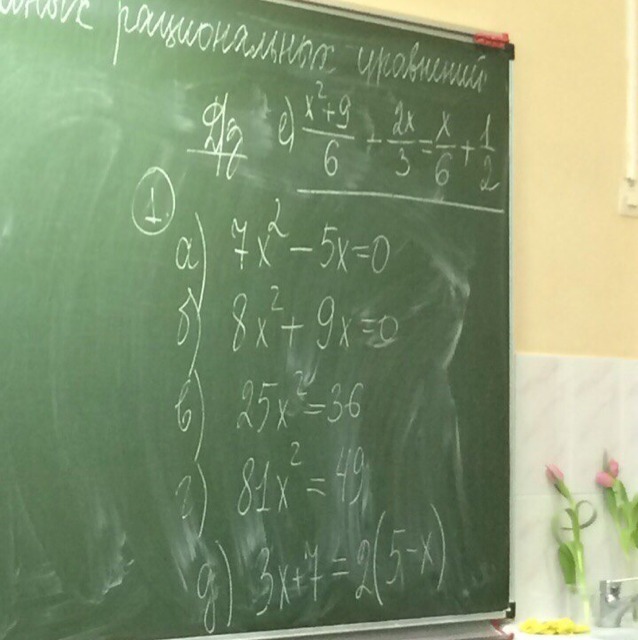 рациональных уравнений
Дз е) (x²+9)/6 - 2x/3 = x/6 + 1/2
1.
а) 7x² - 5x = 0
б) 8x² + 9x = 0
в) 25x² = 36
г) 81x² = 49
д) 3x+7 = 2(5-x)